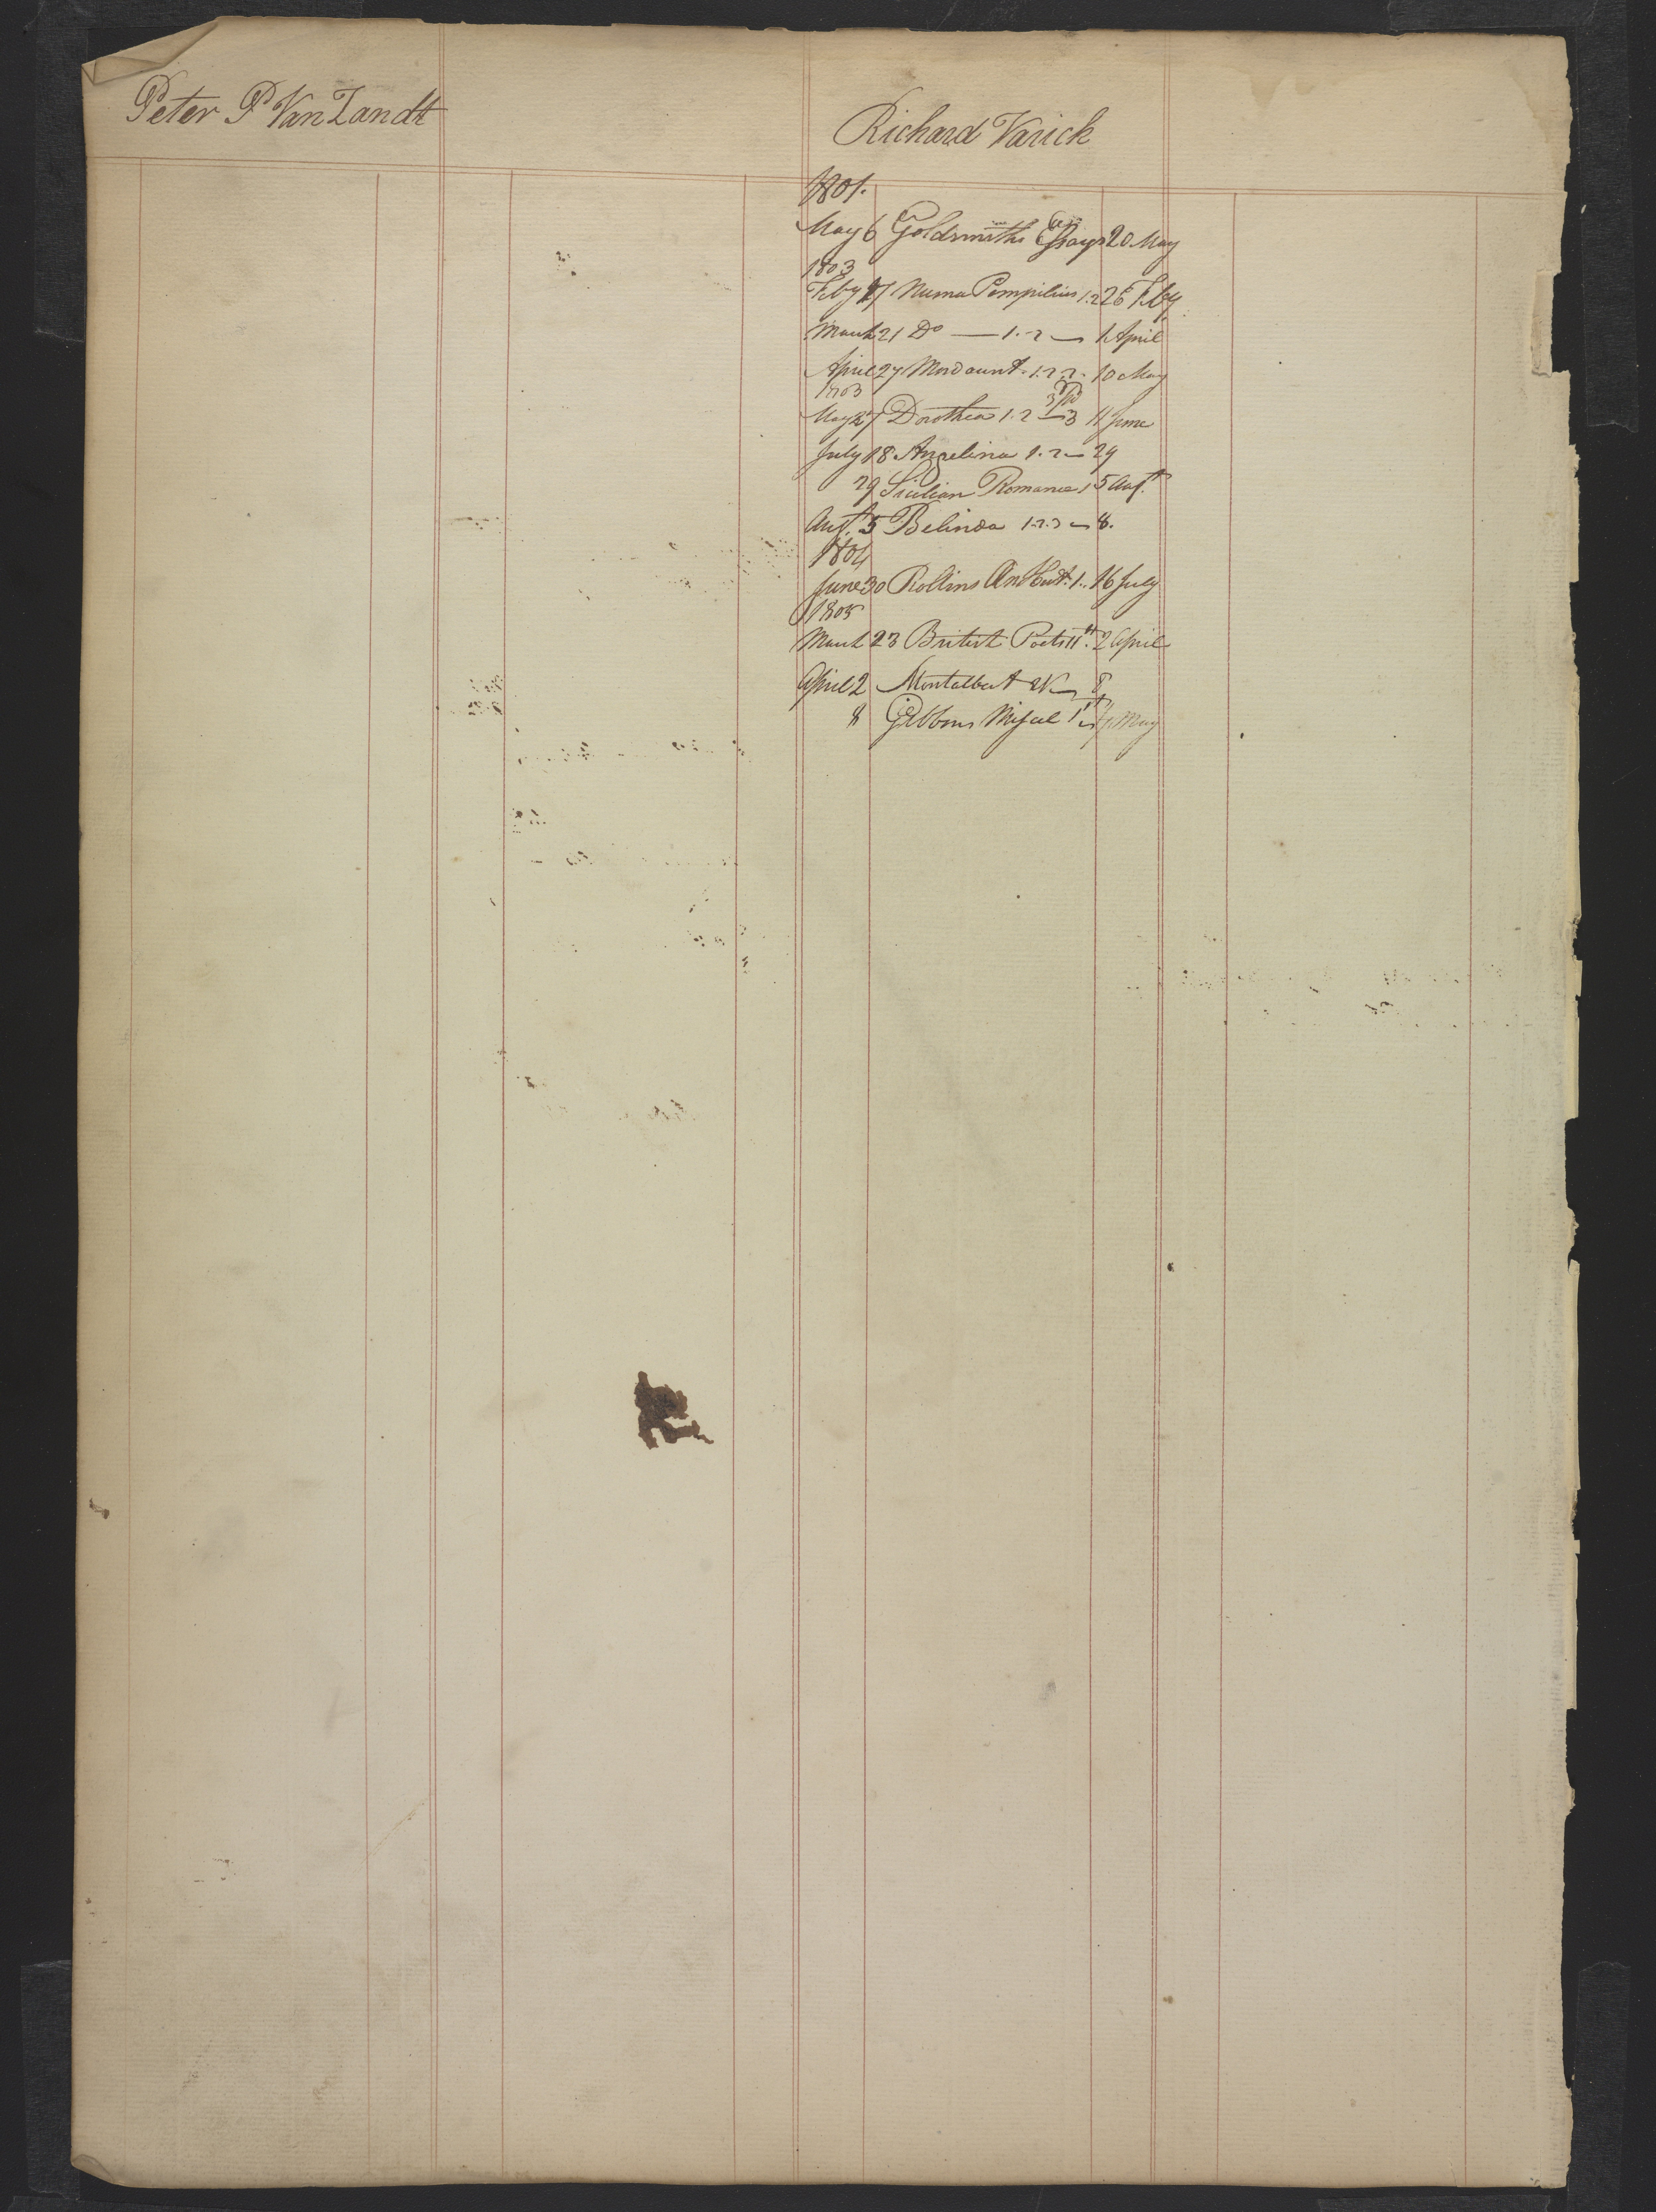 Peter P Van Zandt
Richard Varick
1801.
May 6 Goldsmiths Essays 20 May
1803
Feby 17 Numa Pompilius 1.2 26 Feby
March 21 Do — 1.2 — 1 April
April 27 Mordaunt. 1.2.3. 10 May
1803
3
May 27 Dorothea 1.2 — 3 11 June
July 18 Angelina 1.2 — 29
29 Sicilian Romance 1 5 Augt.
Augt. 5 Belinda 1.2.3 — 8.
1804
June 30 Rollins An Hist. 1.. 16 July
1805
March 23 British Poets 11th. 2 April
April 2 Montalbert 2V — 8
8 Gibbons Miscel 1st — May